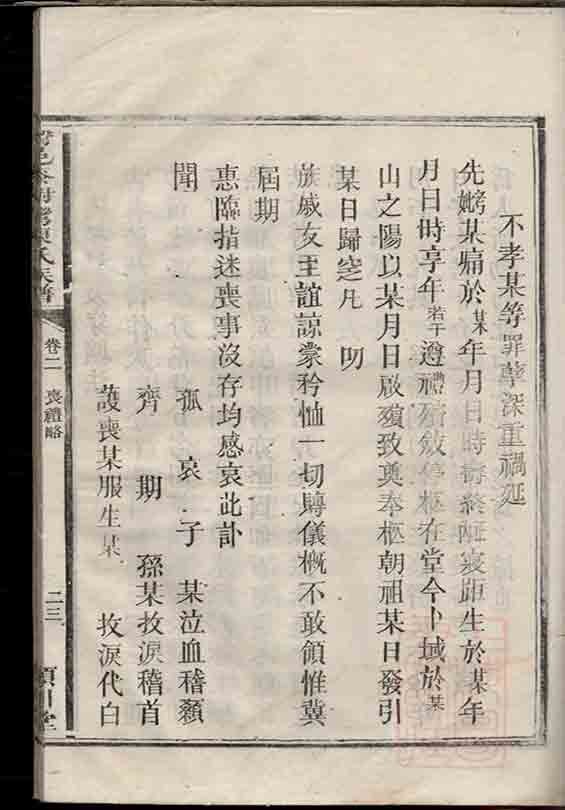 不孝某等罪孽深重禍延
先妣某痛於某年月日時壽終內寢距生於某年
月日時享年若干遵禮殯斂停柩在堂今卜域於某
山之陽以某月日啟殯致奠奉柩朝祖某日發引
某日歸窆凡 叨
族戚友王誼諒蒙矜恤一切賻儀概不敢領惟冀
屆期
惠臨指迷喪事沒存均感哀此訃
聞
孤哀子某泣血稽顙
齊期孫某抆淚稽首
護喪某服生某 抆淚代白
陳氏族譜
卷二 喪禮略
二三
潁川堂